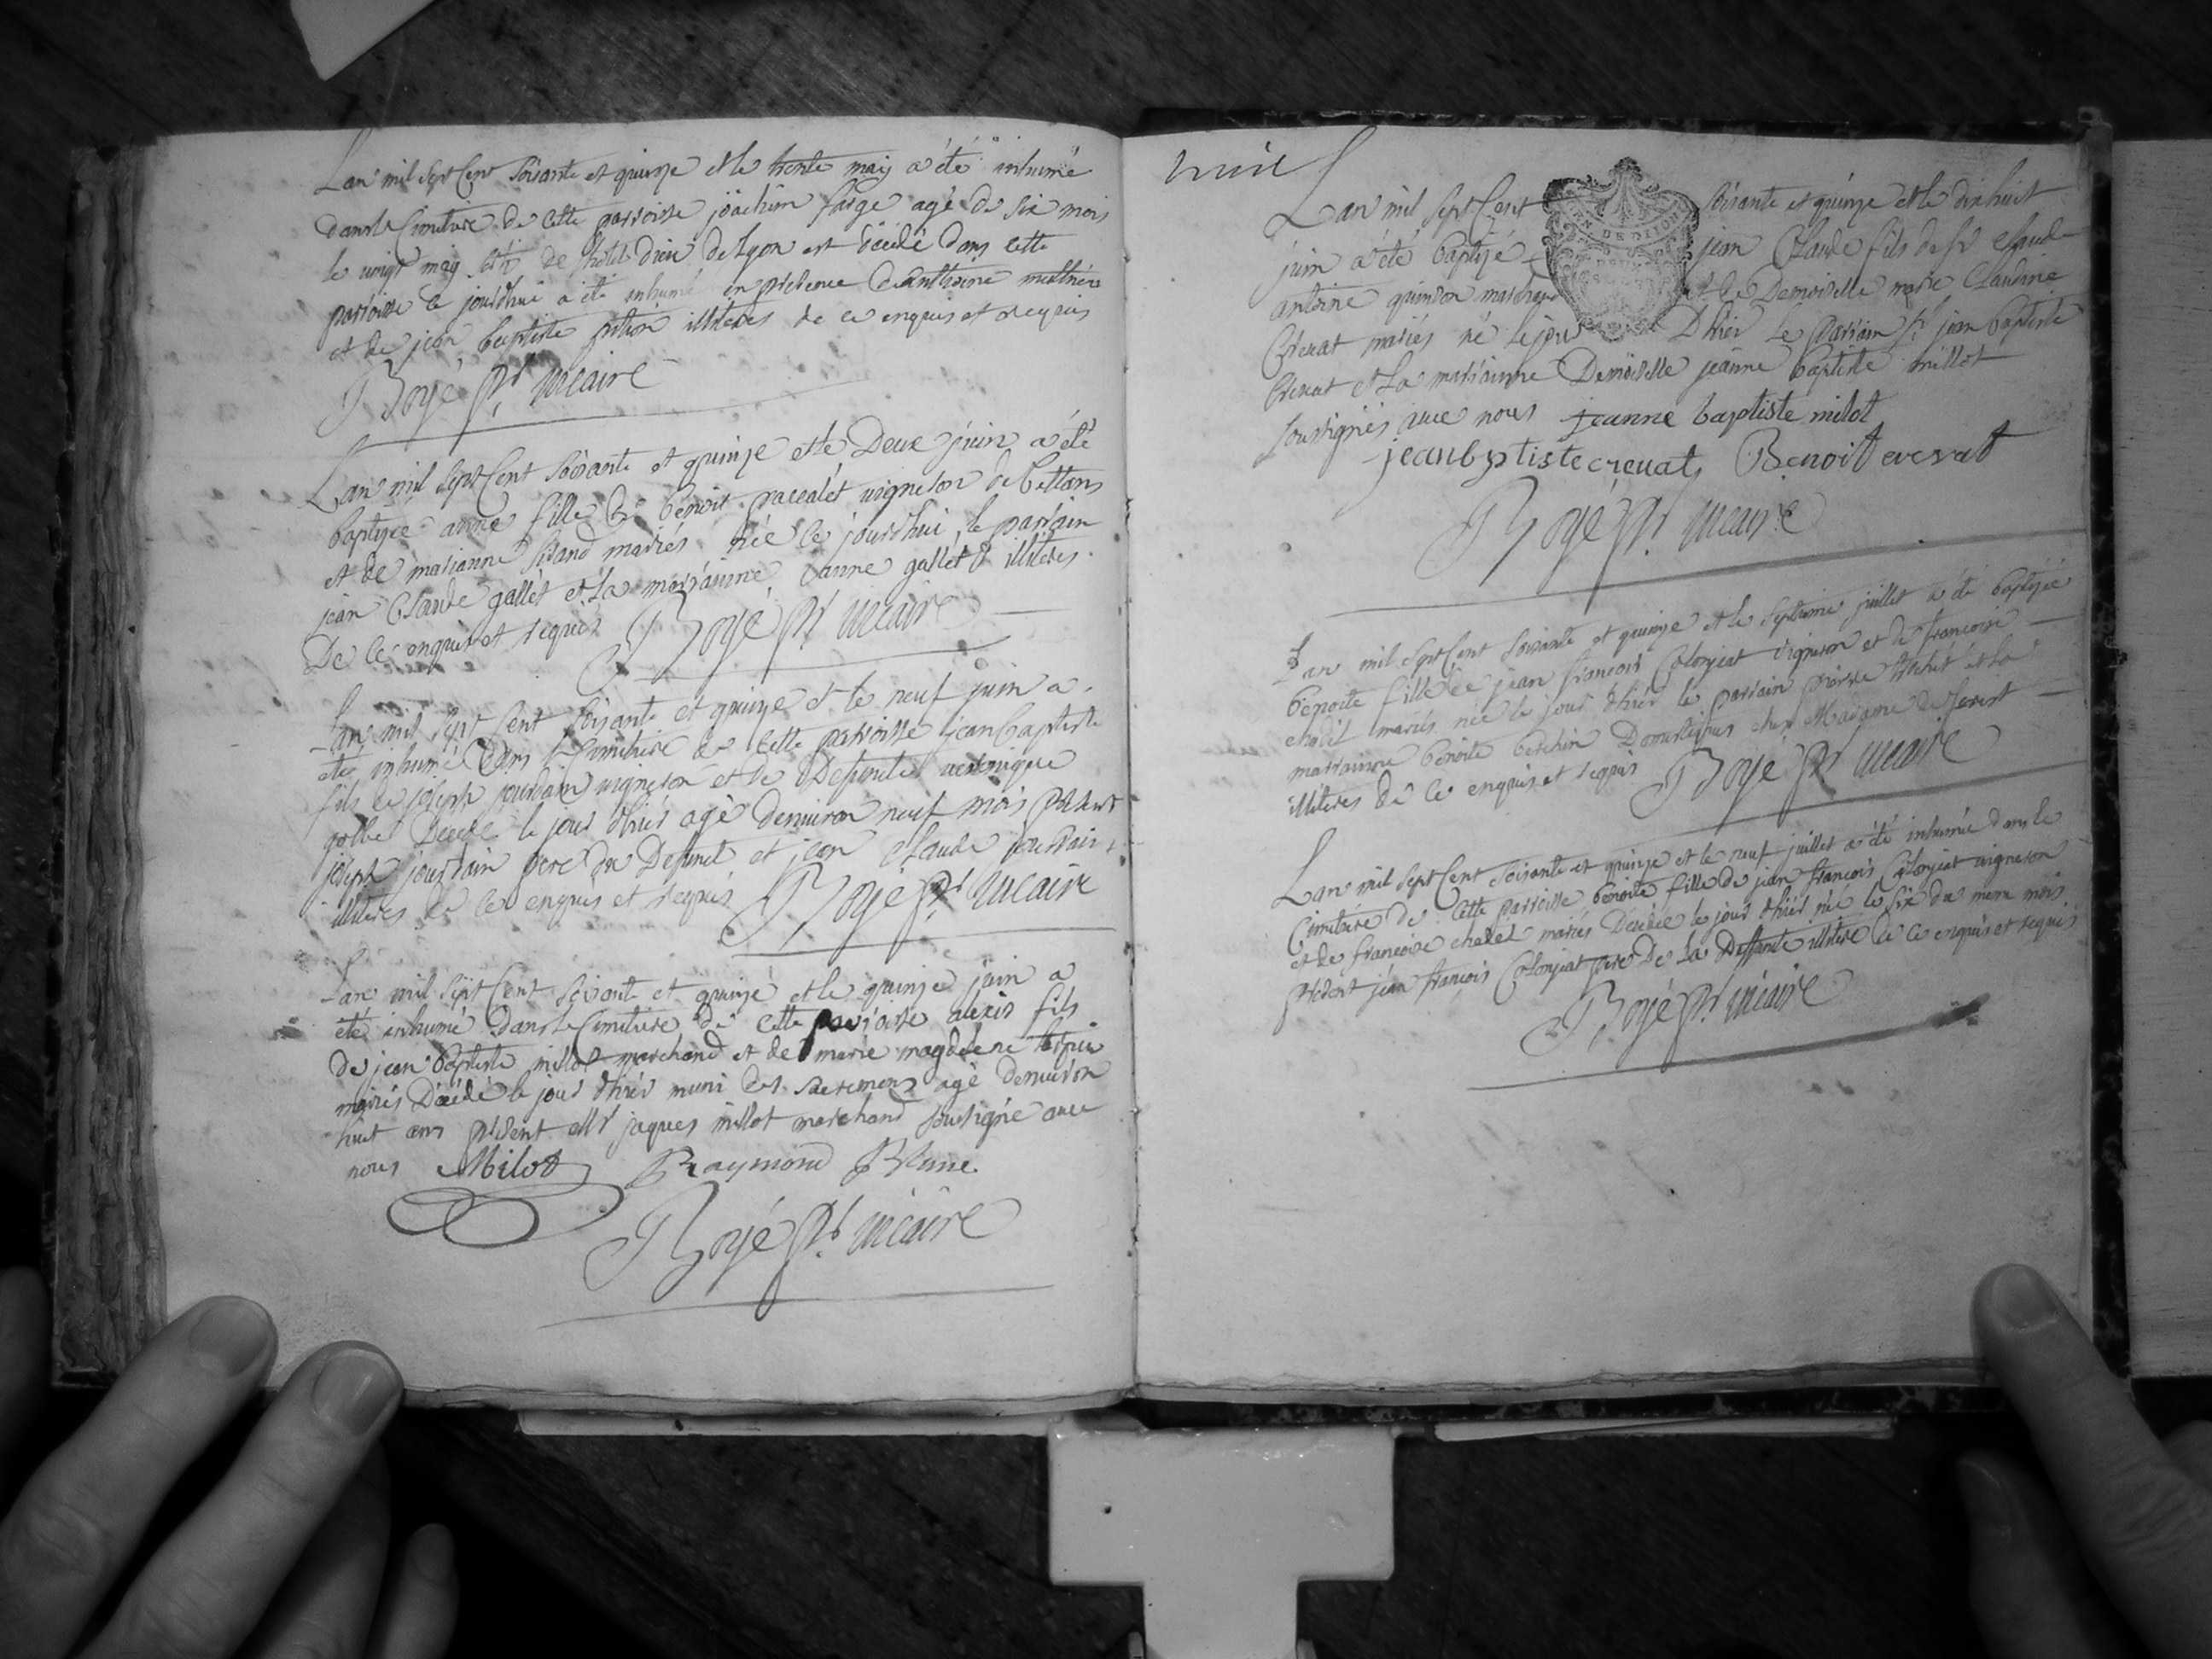 Lan mil sept Cent soisante et quinze et le trente may a été inhumé
dans le Cimetiere de cette parroisse joachim farge agé de six mois
le vingt may de l'hotel dieu de lyon est décédé dans cette
parroisse ce jourdhui a été inhumé en présence de anthoine
et de jean baptiste illiteres de ce enquis et requis
Royé ptr vicaire
Lan mil sept Cent soisante et quinze et le Deux juin a été
baptizée anne fille de benoit paccalet vigneron de bettans
et de marianne mariés née ce jourdhui le parrain
jean Claude gallet et la marrainne anne gallet illiteres
De ce enquis et requis Royé ptr vicaire
Lan mil sept Cent soisante et quinze et le neuf juin a
eté inhumé dans le Cimetiere de cette parroisse jean baptiste
fils de joseph jourdain vigneron et de Defunte veronique
Décédé le jour d'hier agé denviron neuf mois présent
joseph jourdain pere du Defunct et jean Claude jourdain
illiteres de ce enquis et requis Royé ptr vicaire
Lan mil sept Cent soisante et quinze et le quinze juin a
été inhumé dans le Cimetiere de cette parroisse alexis fils
de jean baptiste milot marchand et de marie magdelene
mariés Décédé le jour d'hier muni des sacremens agé denviron
huit ans présent jaques millot marchand soussigné avec
nous Milot Raymond Brune
Royé ptr vicaire
huit
Lan mil sept Cent soisante et quinze et le dix huit
juin a été baptizé jean Claude fils de sr Claude
antoine quinson marchand et de Demoiselle marie Claudine
Crevat mariés né le jour D'hier le parrain sr jean baptiste
Crevat et la marrainne Demoiselle jeanne baptiste millot
soussignés avec nous jeanne baptiste milot
jean bptiste crevat Benoit crevat
Royé ptr vicaire
Lan mil sept Cent soisante et quinze et le septieme juillet a été baptizée
benoite fille de jean françois Colonjeat vigneron et de françoise
mariés née le jour d'hier le parrain pierre et la
marrainne benoite Domestiques chez Madame de
illiteres de ce enquis et requis Royé ptr vicaire
Lan mil sept Cent soisante et quinze et le neuf juillet a été inhumée dans le
Cimetiere de cette parroisse benoite fille de jean françois Colonjeat vigneron
et de françoise mariés Décédée le jour d'hier née le six du meme mois
présent jean françois Colonjeat pere de la Deffunte illitere de ce enquis et requis
Royé ptr vicaire